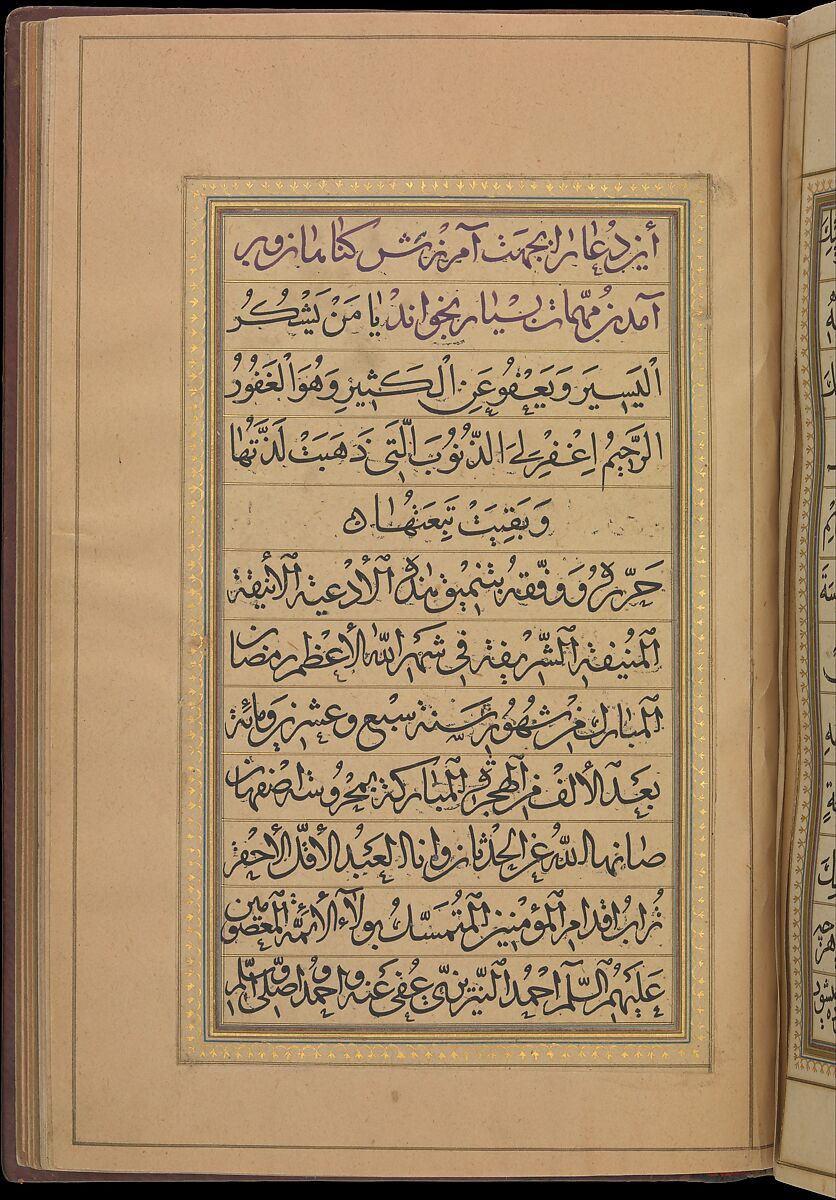 این دعا را بجهت آمرزش کناهان و بر
آمدن مهمات بسیار بخوانند یا مَنْ یَشْکُرُ
الْیَسیرَ وَیَعْفُو عَنِ الْکَثیرِ وَهُوَ الْغَفُورُ
الرَّحیمُ اِغْفِرْ لِیَ الذُّنُوبَ الَّتی ذَهَبَتْ لَذَّتُها
وَبَقِیَتْ تَبِعَتُها
حَرَّرَهُ وَوَفَّقَهُ بتنمیق هذه الأدعیة الأنیقة
المُنیفة الشّریفة فی شهر الله الأعظم رمضان
المبارك من شهور سنة سبع وعشرین ومائة
بعد الألف من الهجرة المبارکة بمحروسة اصفهان
صانها الله عن الحدثان وانا العبد الأقلّ الأحقر
تراب اقدام المؤمنین المتمسّك بولاء الأئمّة المعصومین
علیهم السّلم احمد النیریزی عفی عنه